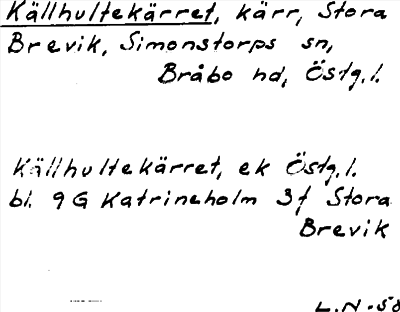 Källhultekärret, kärr, Stora
Brevik, Simonstorps sn,
Bråbo hd, Östg. l.
Källhultekärret, ek Östg. l.
bl. 9 G Katrineholm 3 f Stora
Brevik
L.N-58